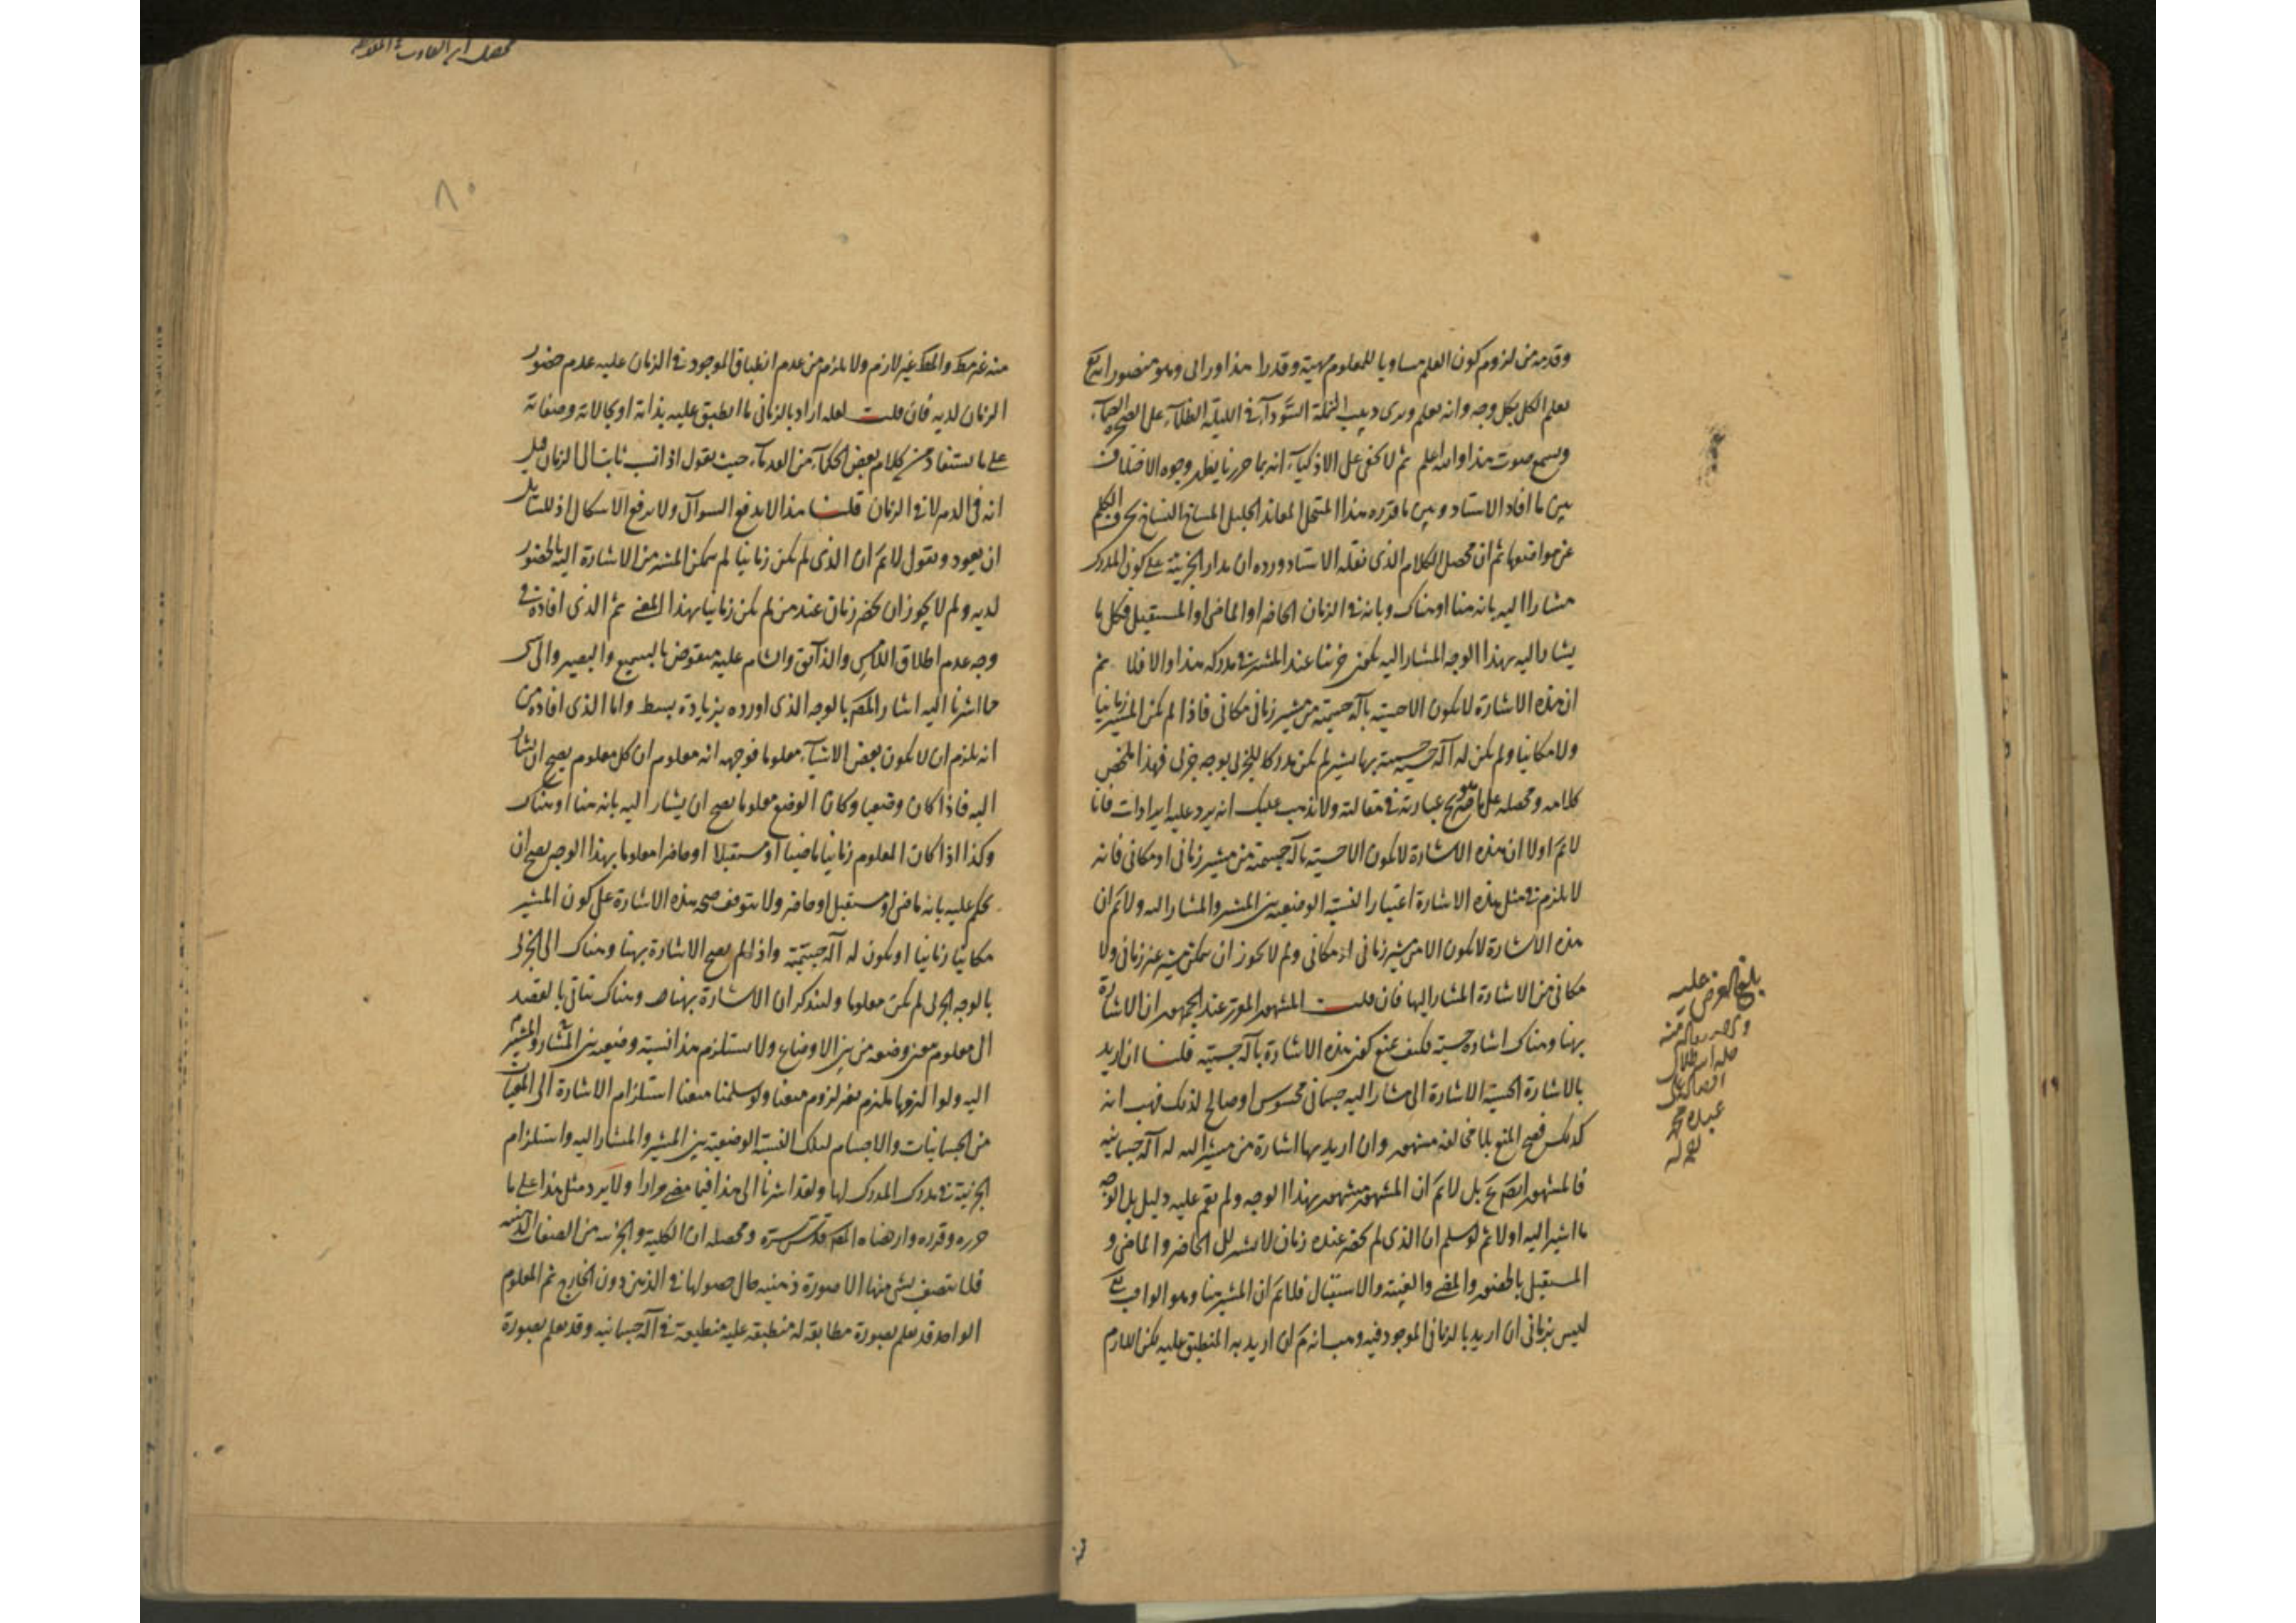 وقدمه من لزوم كون العلم مساويا للمعلوم مهية وقدرا هذا ورائى وهو منصور انه تع
يعلم الكل بكل وجه وانه يعلم ويرى دبيب النملة السودآء فى الليلة الظلمآء على الصخرة الصمآء
ويسمع صوت هذا والله اعلم ثم لا يخفى على الاذكيآء انه بما حررنا يظهر وجوه الاختلاف
بين ما افاد الاستاد وبين ما قرره هذا المنتحل المعاند الجليل النساخ يحرف الكلم
عن مواضعها ثم ان محصل الكلام الذى نقله الاستاد ورده ان مدار الجزئية على كون المدرك
مشارا اليه بانه هنا او هناك وبانه فى الزمان الحاضر او الماضى او المستقبل فكل ما
يشار اليه بهذا الوجه المشار اليه يكون جزئيا عند المشير فى مدركه هذا والا فلا ثم
ان هذه الاشارة لا يكون الا حسية بآلة جسمية من مشير زمانى مكانى فاذا لم يكن المشير زمانيا
ولا مكانيا ولم يكن له آلة جسمية بها يشير لم يكن مدركا للجزئى بوجه جزئى فهذا ملخص
كلامه ومحصله على ما صرح عبارته فى مقالته ولا يذهب عليك انه يرد عليه ايرادات فانا
لا نم اولا ان هذه الاشارة لا يكون الا حسية بآلة جسمية من مشير زمانى او مكانى فانه
لا يلزم فى مثل هذه الاشارة اعتبار النسبة الوضعية بين المشير والمشار اليه ولا نم ان
هذه الاشارة لا يكون الا من مشير زمانى او مكانى ولم لا يجوز ان يمكن مشير غير زمانى ولا
مكانى من الاشارة المشار اليها فان قلت المشهور المقرر عند الجمهور ان الاشارة
بهنا وهناك اشارة حسية فكيف يمنع كون هذه الاشارة بآلة حسية قلنا ان اريد
بالاشارة الحسية الاشارة الى مشار اليه جسمانى محسوس او صالح لذلك فهب انه
كذلك فصح المنع لما مشهور وان اريد بها اشارة من مشير اليه له آلة جسمانية
فالمشهور ايضا بل لا نم ان المشهور مشهور بهذا الوجه ولم يقم عليه دليل بل الوجه
ما اشير اليه اولا ثم لو سلم ان الذى لم يحضر عنده زمان لا يشير الى الحاضر والماضى و
المستقبل بالحضور والمضى والغيبة والاستقبال فلا نم ان المشير هنا وهو الواجب تع
ليس بزمانى ان اريد بالزمانى الموجود فيه وهب انه ان اريد به المنطبق عليه لكن اللازم
بلغ العرض عليه
عبده محمد
منه غير مط والمط غير لازم ولا يلزم من عدم انطباق الموجود فى الزمان عليه عدم حضور
الزمان لديه فان قلت لعله اراد بالزمانى ما انطبق عليه بذاته او بحالاته وصفاته
على ما يستفاد من كلام بعض الحكمآء من القدمآء حيث يقول اذا نسب ثابت الى الزمان قيل
انه فى الدهر لا فى الزمان قلنا هذا لا يدفع السوآل ولا يرفع الاشكال اذ للسائل
ان يعود ويقول لا نم ان الذى لم يكن زمانيا لم يمكن المشير من الاشارة اليه بالحضور
لديه ولم لا يجوز ان يحضر زمان عند من لم يكن زمانيا بهذا المعنى ثم الذى افاده فى
وجه عدم اطلاق اللامس والذآئق والشام عليه منقوض بالسميع والبصير والى
ما اشرنا اليه اشار المص بالوجه الذى اورده بزيادة بسط واما الذى افاده من
انه يلزم ان لا يكون بعض الاشيآء معلوما فوجهه انه معلوم ان كل معلوم يصح ان يشار
اليه فاذا كان وضعيا وكان الوضع معلوما يصح ان يشار اليه بانه هنا او هناك
وكذا اذا كان المعلوم زمانيا ماضيا او مستقبلا او حاضرا معلوما بهذا الوجه يصح ان
يحكم عليه بانه ماض او مستقبل او حاضر ولا يتوقف صحة هذه الاشارة على كون المشير
مكانيا زمانيا او يكون له آلة جسمية واذا لم يصح الاشارة بهنا وهناك الى الجزئى
بالوجه الجزئى لم يكن معلوما ولنذكر ان الاشارة بهنا وهناك تتأتى بالقصد
الى معلوم معين وضعه من بين الاوضاع ولا يستلزم هذا نسبة وضعية بين المشار والمشير
اليه ولو التزمها ملتزم نمنع لزوم منعنا ولو سلمنا منعنا استلزام الاشارة الى
من الجسمانيات والاجسام لتلك النسبة الوضعية بين المشير والمشار اليه واستلزام
الجزئية فى مدرك المدرك لها ولقد اشرنا الى هذا فيما مضى مرارا ولا يرد مثل هذا على ما
حرره وقرره وارتضاه المص قدس سره ومحصله ان الكلية والجزئية من الصفات الذهنية
فلا يتصف بشئ منها الا صورة ذهنية حال حصولها فى الذهن دون الخارج ثم المعلوم
الواحد قد يعلم بصورة مطابقة له منطبقة عليه منطبعة فى آلة جسمانية وقد يعلم بصورة
٨٠